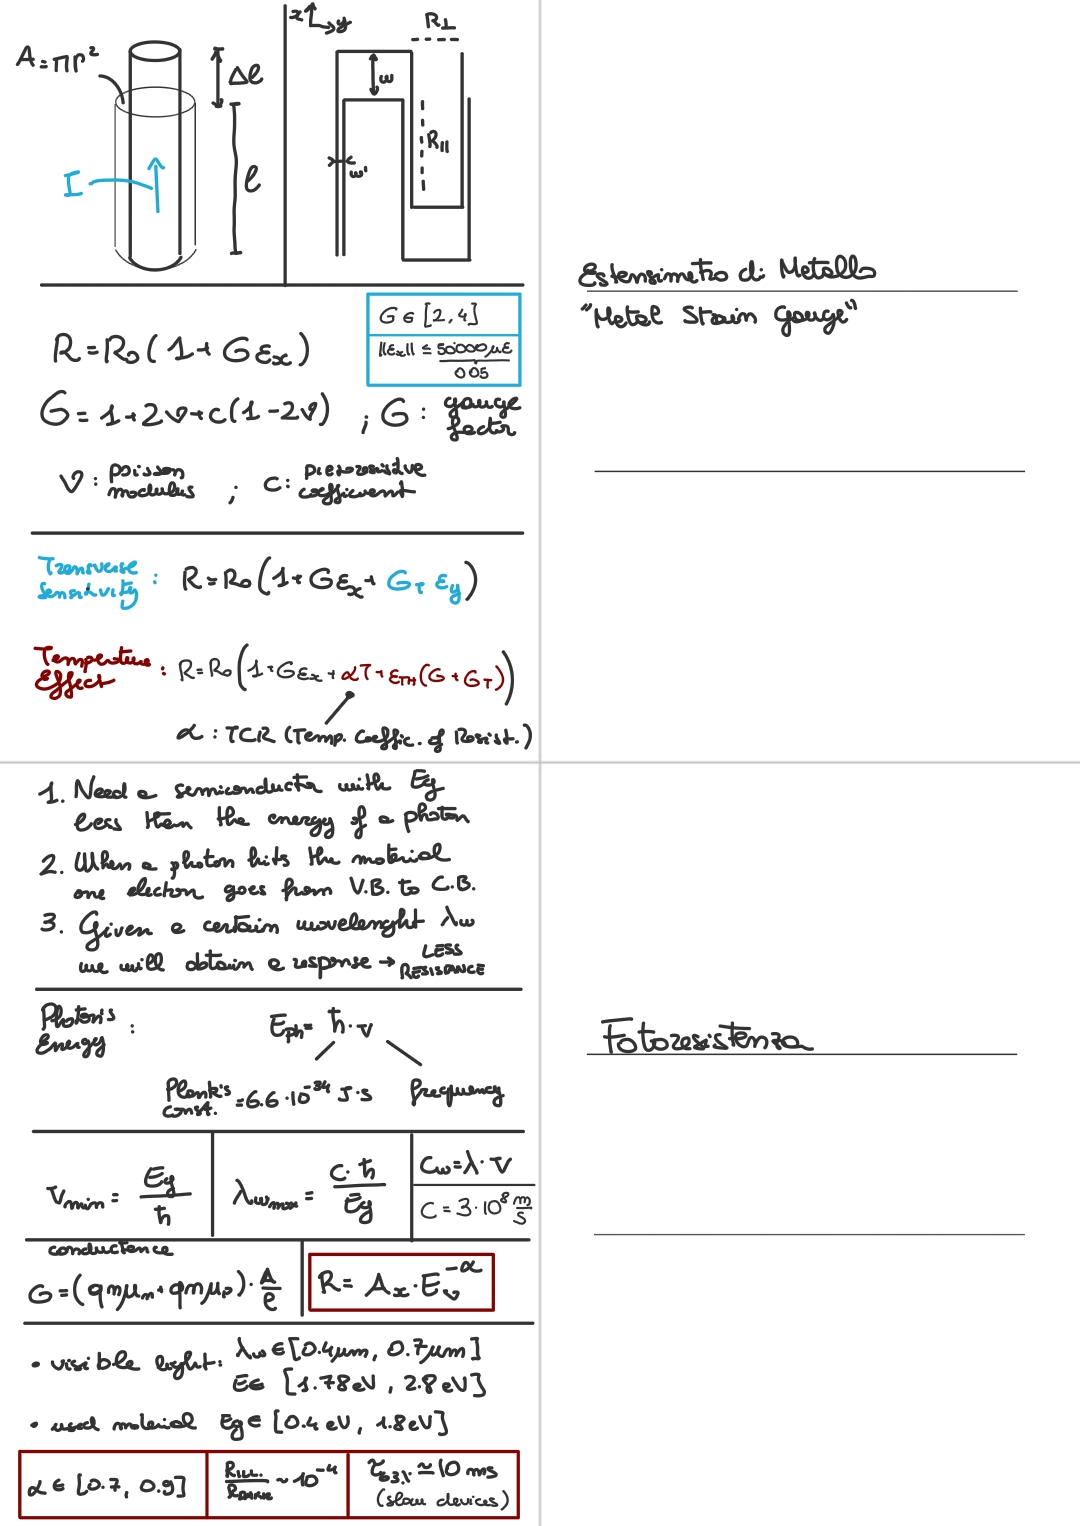 A = πr²
Δl
l
I
x
y
R⊥
w
R||
w'
Estensimetro di Metallo
"Metal Strain Gauge"
R = R₀(1 + Gεₓ)
G ∈ [2, 4]
||εₓ|| ≤ 50000με
0.05
G = 1 + 2ν + c(1 - 2ν) ; G : gauge factor
ν : poisson modulus ; c : piezoresistive coefficient
Transverse sensitivity : R = R₀(1 + Gεₓ + G_T ε_y)
Temperature Effect : R = R₀(1 + Gεₓ + αT + ε_TH(G + G_T))
α : TCR (Temp. Coeffic. of Resist.)
1. Need a semiconductor with Eg
less than the energy of a photon
2. When a photon hits the material
one electron goes from V.B. to C.B.
3. Given a certain wavelenght λw
we will obtain a response → LESS RESISTANCE
Fotoresistenza
Photon's Energy :
E_ph = ħ · ν
Plank's const. = 6.6 · 10⁻³⁴ J · s
frequency
ν_min = Eg / ħ
λw_max = C · ħ / Eg
Cw = λ · ν
C = 3 · 10⁸ m/s
conductance
G = (qnμn + qnμp) · A/l
R = Aₓ · Eν^-α
• visible light : λw ∈ [0.4μm, 0.7μm]
E ∈ [1.78eV, 2.8eV]
• used material Eg ∈ [0.4 eV, 1.8eV]
α ∈ [0.7, 0.9]
R_ILL. / R_DARK ~ 10⁻⁴
τ63% ≃ 10 ms
(slow devices)